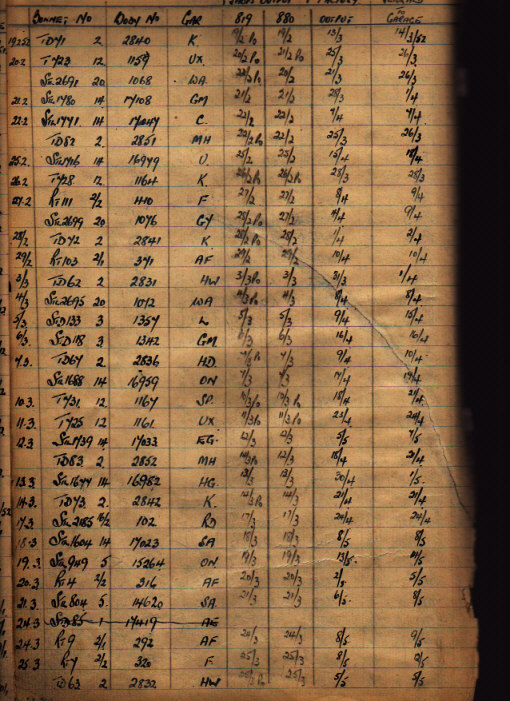 BONNET No BODY No GAR 819 880 OUTPUT TO GARAGE
19252 TD71 2 2840 K 19/2 Po 19/2 13/3 14/3/52
20.2 TY23 12 1159 UX 20/2 Po 21/2 Po 25/3 21/3
STL2691 20 1068 WA 22/2 Po 20/2 21/3 26/3
21.2 STL1780 14 17108 GM 21/2 21/2 28/3 1/4
22.2 STL1771 14 17047 C 22/2 22/2 7/4 7/4
TD82 2 2851 MH 22/2 Po 22/2 25/3 26/3
25.2 14 16979 U 25/2 25/2 18/4
26.2 TY28 12 1164 K 26/2 Po 26/2 Po 25/3 28/3
27.2 RT111 2/2 440 F 27/2 27/2 8/4 9/4
STL2699 20 1076 GY 28/2 Po 27/2 9/4
28/2 TD72 2 2841 K 28/2 Po 28/2 1/4 2/4
29/2 RT103 2/1 391 AF 29/2 29/2 10/4 10/4
3/3 TD62 2 2831 HW 3/3 Po 3/3 31/3 1/4
4/3 STL2695 20 1072 WA 4/3 Po 4/3 8/4 8/4
5/3 STD133 3 1357 L 5/3 5/3 9/4 15/4
6/3 STD118 3 1342 GM 6/3 6/3 16/4 16/4
7.3. TD67 2 2836 HD 7/3 9/4 10/4
STL1688 14 16959 ON 7/3 17/4
10.3. TY31 12 1167 SP 10/3 Po 18/4 21/4
11.3. TY25 12 1161 UX 11/3 Po 11/3 Po 23/4 24/4
12.3 STL1739 14 17033 EG 12/3 12/3 5/5 7/5
TD83 2 2852 MH 12/3 18/4 21/4
13.3 STL1677 14 16982 HG 13/3 13/3 30/4 1/5
14.3. TD73 2 2842 K 14/3 21/4 21/4
17.3 STL2185 102 RD 17/3 17/3 24/4 24/4
18.3 STL1604 14 17023 SA 18/3 18/3 8/5 8/5
19.3 STL949 5 15264 ON 19/3 19/3 13/5
20.3 RT4 2/2 316 AF 20/3 20/3 2/5 5/5
21.3 STL804 5 14620 SA 21/3 21/3 6/5 8/5
24.3 STD85 1 17419 AE
24.3 RT9 2/1 292 AF 24/3 24/3 8/5 9/5
25.3 RT7 2/2 320 F 25/3 25/3 8/5 9/5
TD63 2 2832 HW 25/2 Po 25/3 5/5 5/5